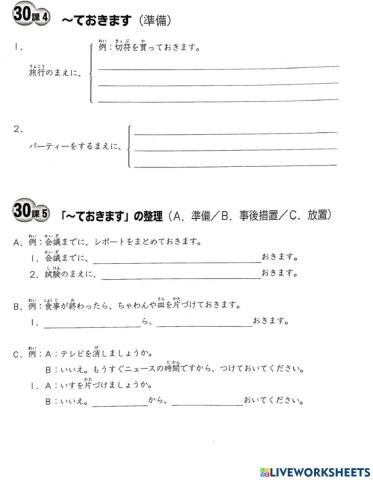 30課4 ～ておきます（準備）
1．
例：切符を買っておきます。
旅行のまえに、
2．
パーティーをするまえに、
30課5 「～ておきます」の整理（A．準備／B．事後措置／C．放置）
A．例：会議までに、レポートをまとめておきます。
1．会議までに、＿＿＿おきます。
2．試験のまえに、＿＿＿おきます。
B．例：食事が終わったら、ちゃわんや皿を片づけておきます。
1．＿＿＿ら、＿＿＿おきます。
C．例：A：テレビを消しましょうか。
B：いいえ。もうすぐニュースの時間ですから、つけておいてください。
1．A：いすを片づけましょうか。
B：いいえ。＿＿＿から、＿＿＿おいてください。
LIVEWORKSHEETS